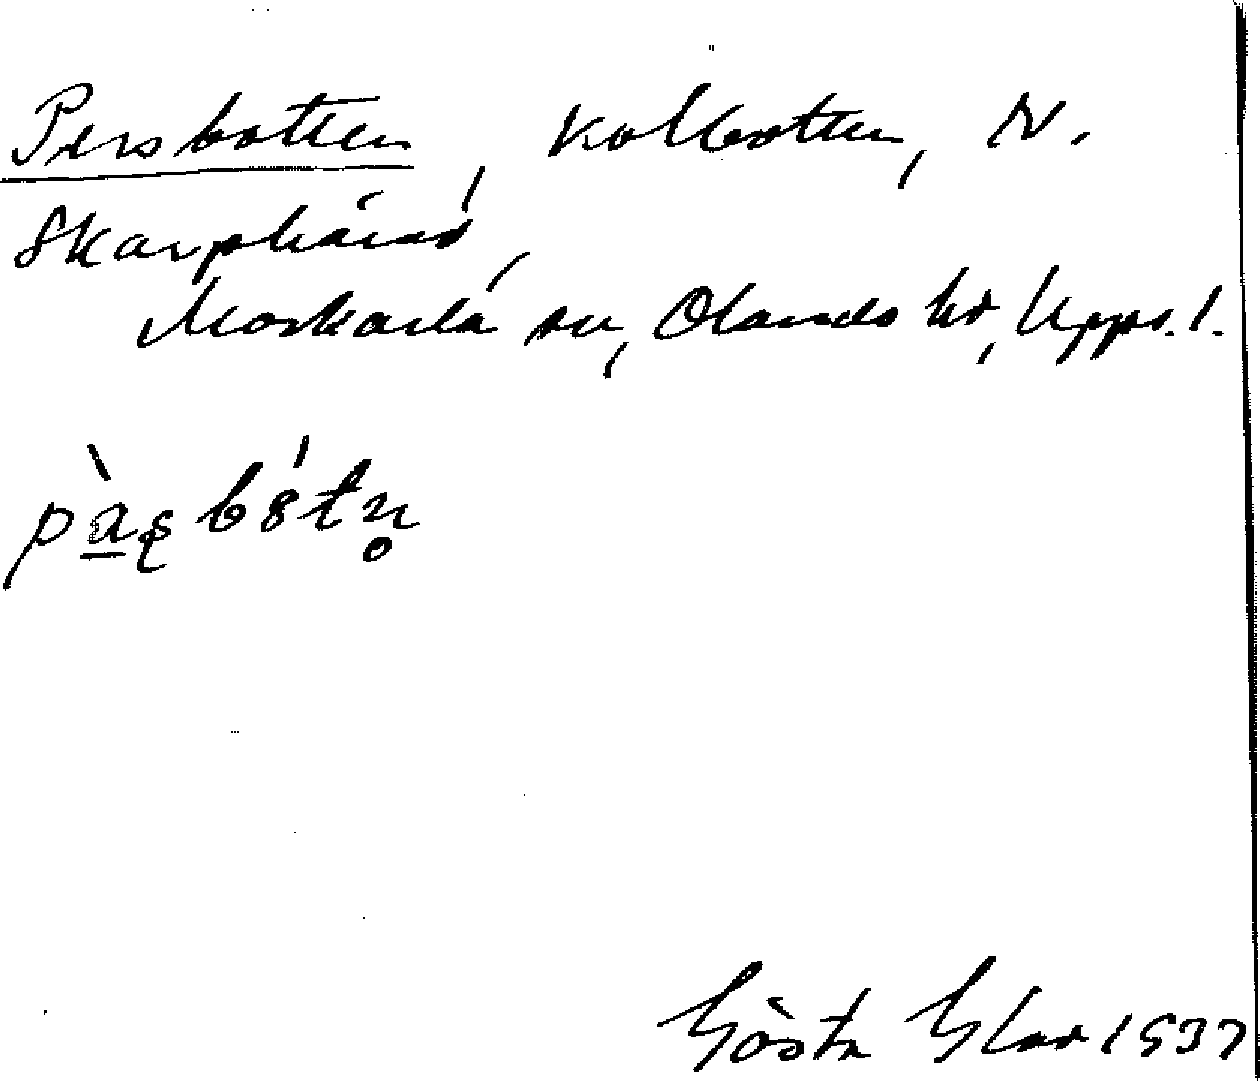 Persbotten, kolbotten, N.
Skarpbånö,
Morkarla sn, Olands hd, Upps. l.
Gösta Glad 1937